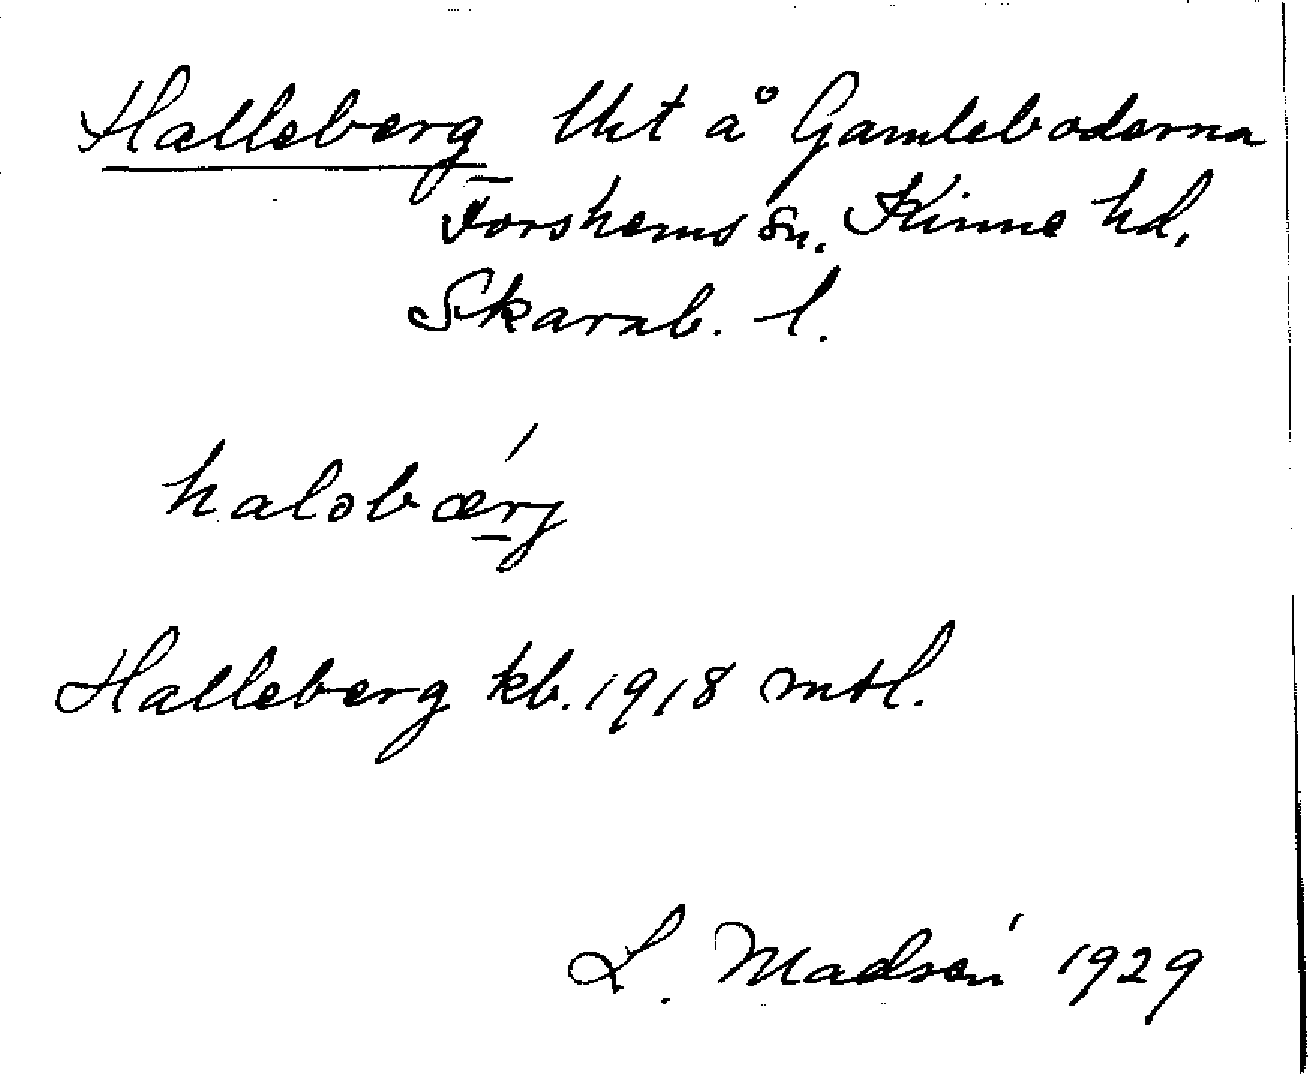 Halleberg lht å Gamleboderna
Forshems sn. Kinne hd.
Skarab. l.
haləbærj
Halleberg kb. 1918 mtl.
L. Madsén 1929